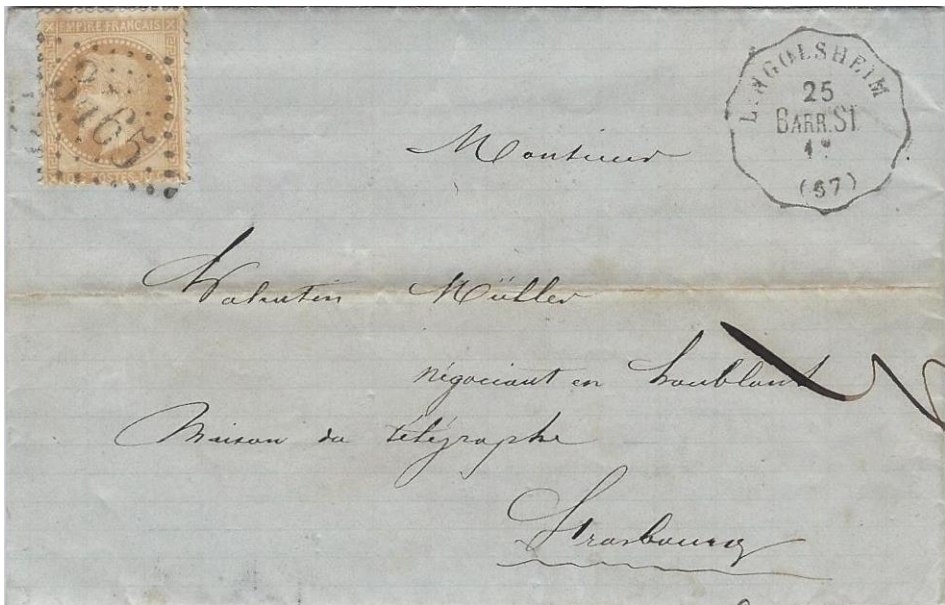 EMPIRE FRANÇAIS
LINGOLSHEIM
25
BARR.ST.
(67)
Monsieur
Valentin Müller
négociant en houblons
Maison du télégraphe
Strasbourg